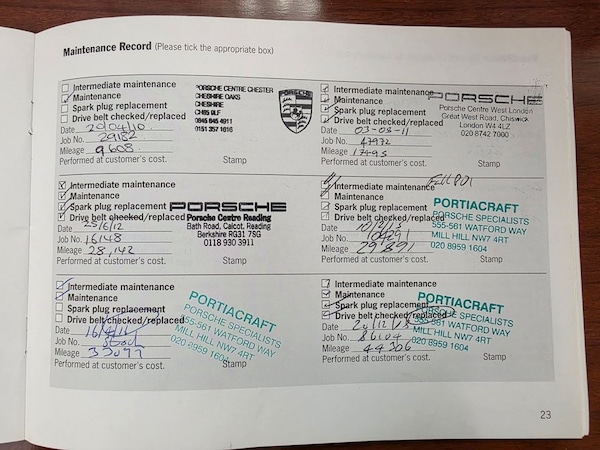 Maintenance Record (Please tick the appropriate box)
Intermediate maintenance
Maintenance
Spark plug replacement
Drive belt checked/replaced
Date 20/04/10
Job No. 29182
Mileage 9608
Performed at customer's cost.
Stamp
PORSCHE CENTRE CHESTER
CHESHIRE OAKS
CHESHIRE
CH65 9LF
0845 845 4911
0151 357 1616
PORSCHE
Intermediate maintenance
Maintenance
Spark plug replacement
Drive belt checked/replaced
Date 03-03-11
Job No. 47972
Mileage 17495
Performed at customer's cost.
Stamp
PORSCHE
Porsche Centre West London
Great West Road, Chiswick
London W4 4LZ
020 8742 7000
Intermediate maintenance
Maintenance
Spark plug replacement
Drive belt checked/replaced
Date 25/6/12
Job No. 16148
Mileage 28,142
Performed at customer's cost.
Stamp
PORSCHE
Porsche Centre Reading
Bath Road, Calcot, Reading
Berkshire RG31 7SG
0118 930 3911
Intermediate maintenance
Maintenance
Spark plug replacement
Drive belt checked/replaced
Date
Job No.
Mileage 29891
Performed at customer's cost.
Stamp
PORTIACRAFT
PORSCHE SPECIALISTS
555-561 WATFORD WAY
MILL HILL NW7 4RT
020 8959 1604
Intermediate maintenance
Maintenance
Spark plug replacement
Drive belt checked/replaced
Date
Job No.
Mileage 33077
Performed at customer's cost.
Stamp
PORTIACRAFT
PORSCHE SPECIALISTS
555-561 WATFORD WAY
MILL HILL NW7 4RT
020 8959 1604
Intermediate maintenance
Maintenance
Spark plug replacement
Drive belt checked/replaced
Date
Job No. 86104
Mileage 44306
Performed at customer's cost.
Stamp
PORTIACRAFT
PORSCHE SPECIALISTS
555-561 WATFORD WAY
MILL HILL NW7 4RT
020 8959 1604
23